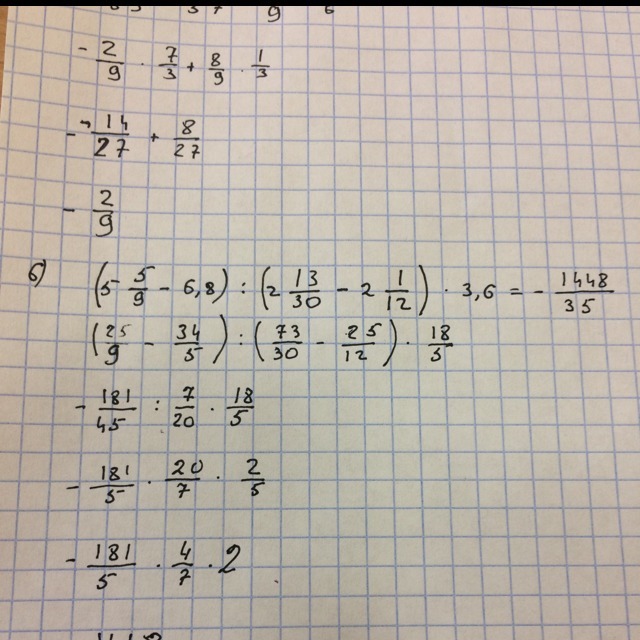 - 2/9 · 7/3 + 8/9 · 1/3
- 14/27 + 8/27
- 2/9
б) (5 5/9 - 6,8) : (2 13/30 - 2 1/12) · 3,6 = - 1448/35
(25/9 - 34/5) : (73/30 - 25/12) · 18/5
- 181/45 : 7/20 · 18/5
- 181/5 · 20/7 · 2/5
- 181/5 · 4/7 · 2